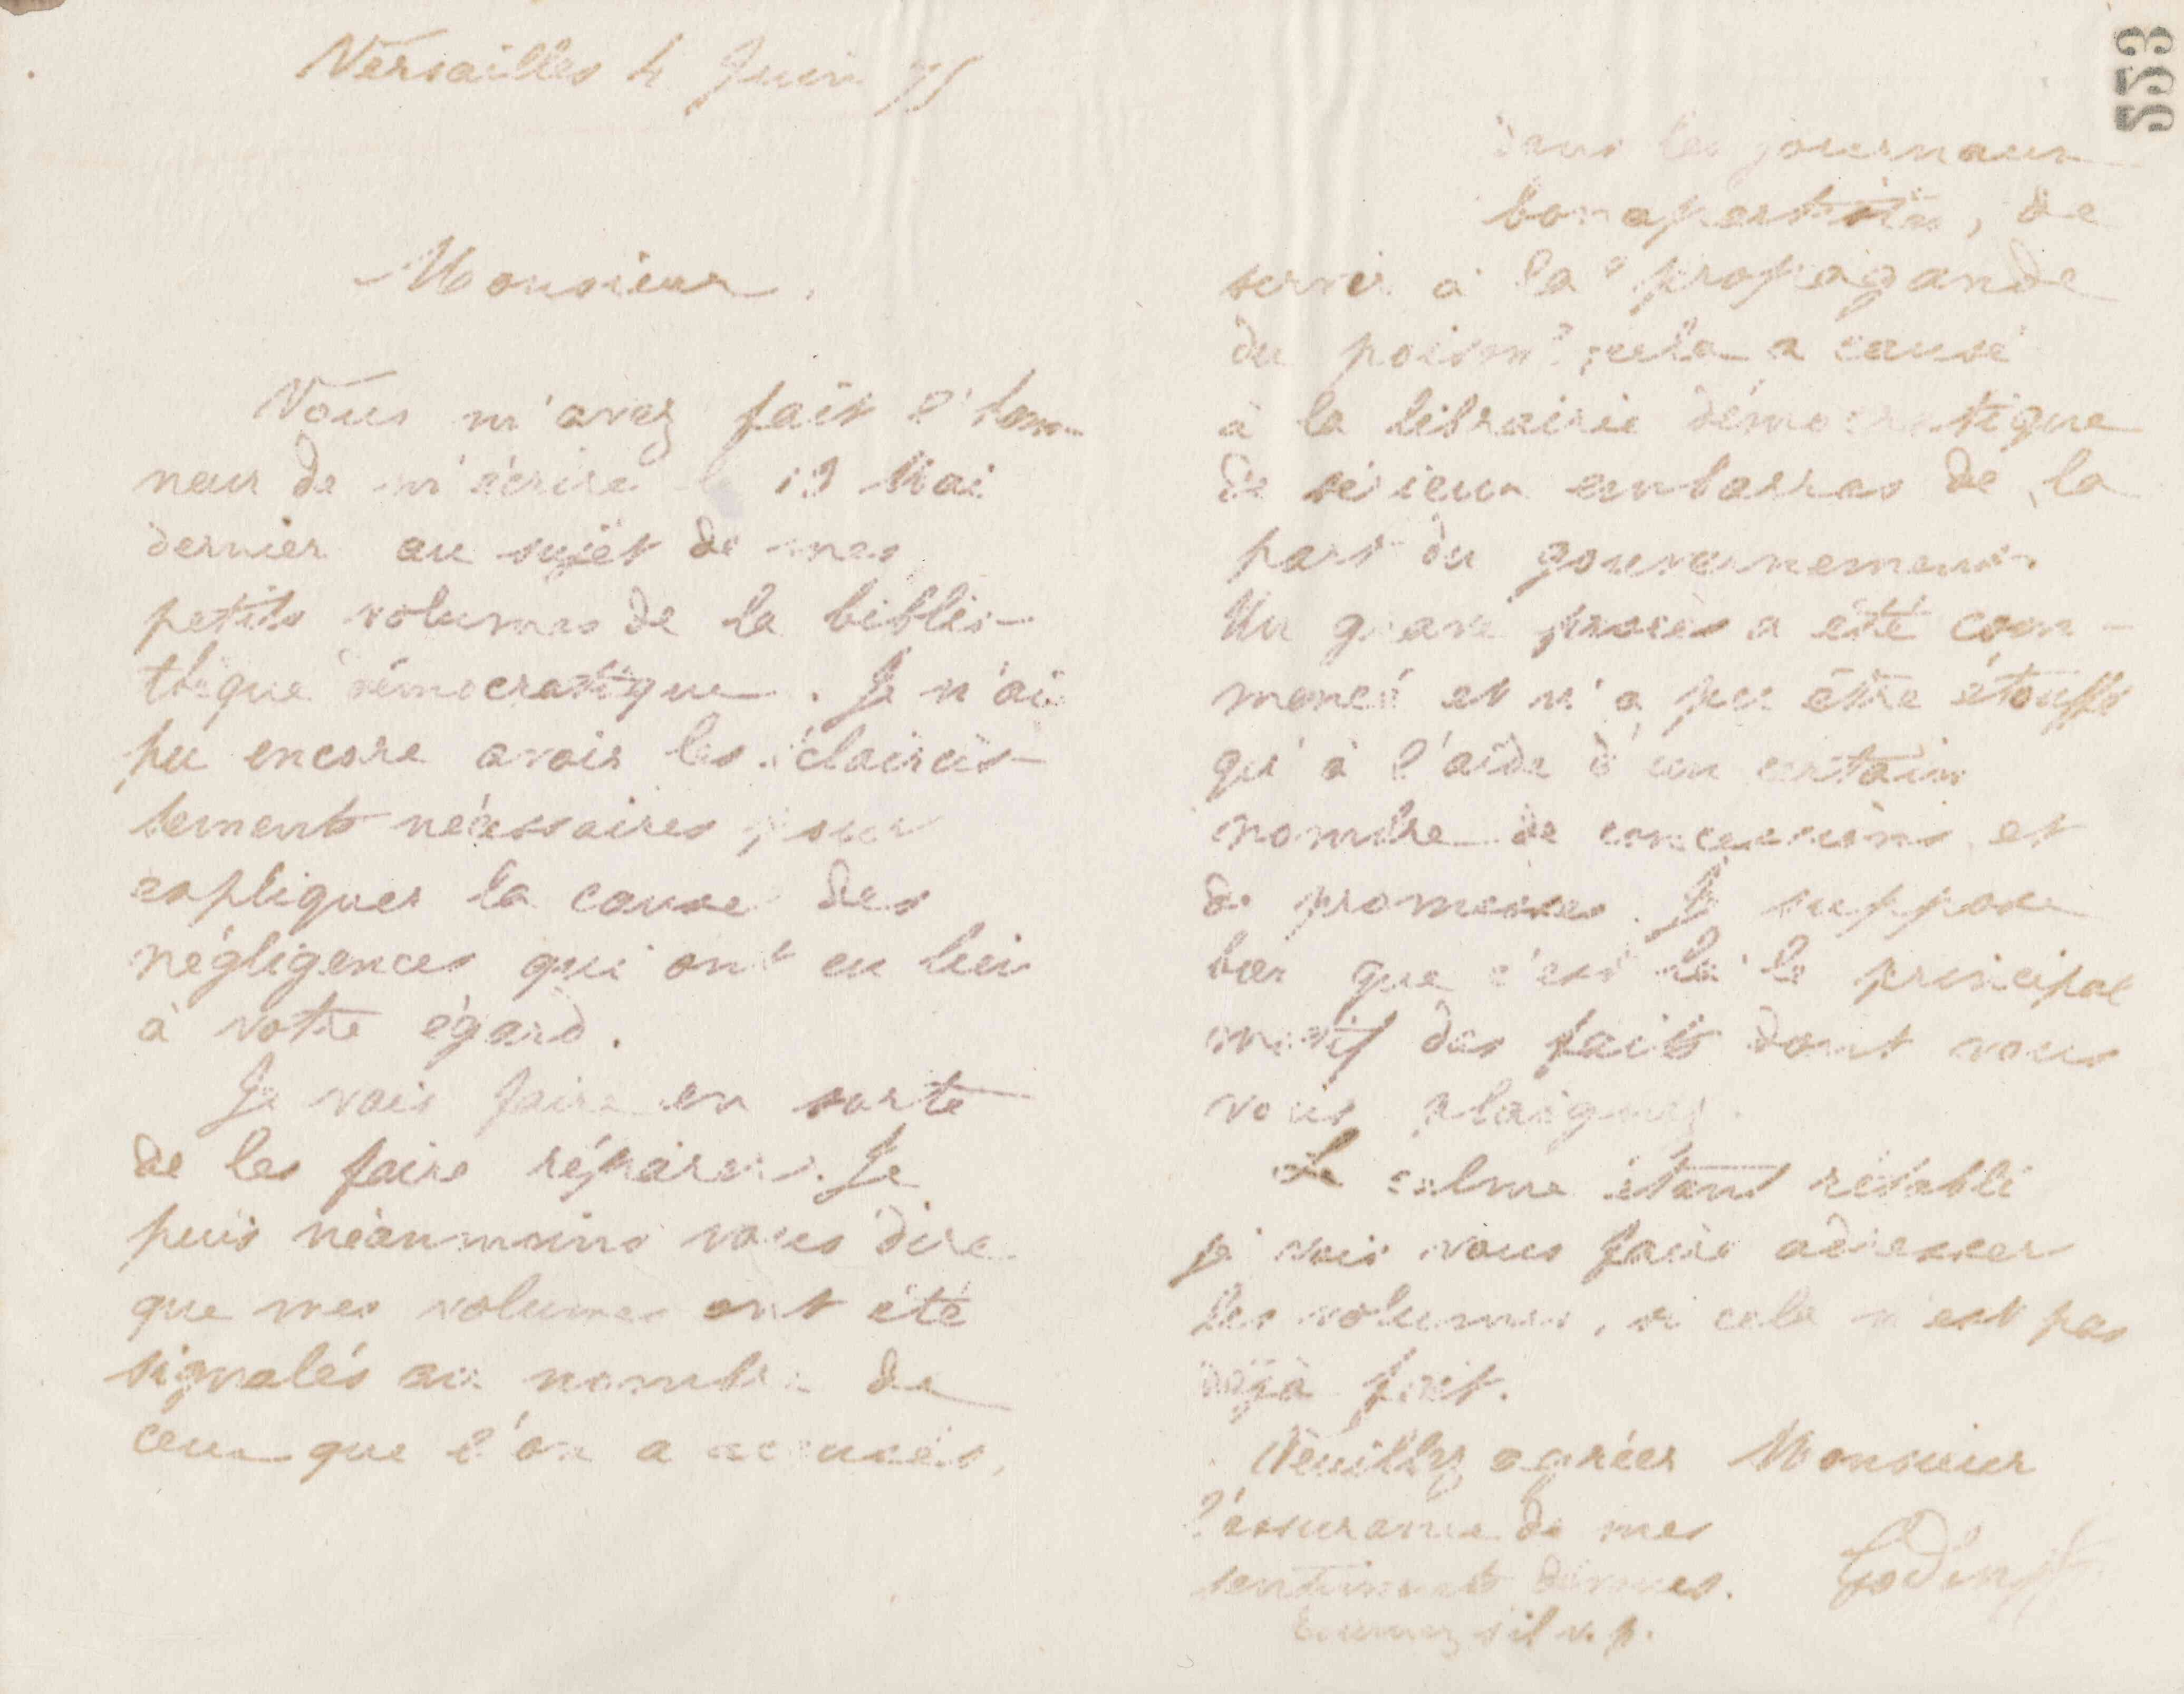 Versailles 4 Juin 75
Monsieur,
Vous m'avez fait l'hon-
neur de m'écrire le 13 Mai
dernier au sujet de mes
petits volumes de la biblio-
thèque démocratique. Je n'ai
pu encore avoir les éclaircis-
sements nécessaires pour
expliquer la cause des
négligences qui ont eu lieu
à votre égard.
Je vais faire en sorte
de les faire réparer. Je
puis néanmoins vous dire
que mes volumes ont été
signalés au nombre de
ceux que l'on a accusés,
553
dans les journaux
bonapartistes, de
servir à la "propagande
du poison"; cela a causé
à la librairie démocratique
de sérieux embarras de la
part du gouvernement.
Un grave procès a été com-
mencé et n'a pu être étouffé
qu'à l'aide d'un certain
nombre de concessions et
de promesses. Je suppose
que c'est là le principal
motif des faits dont vous
vous plaignez.
Le calme étant rétabli
je vais vous faire adresser
les volumes, si cela n'est pas
déjà fait.
Veuillez agréer Monsieur
l'assurance de mes
sentiments dévoués. Godin
Tournez s'il v. p.